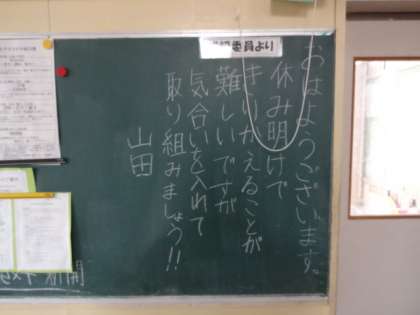 委員より
おはようございます。
休み明けで
きりかえることが
難しいですが
気合いを入れて
取り組みましょう!!
山田